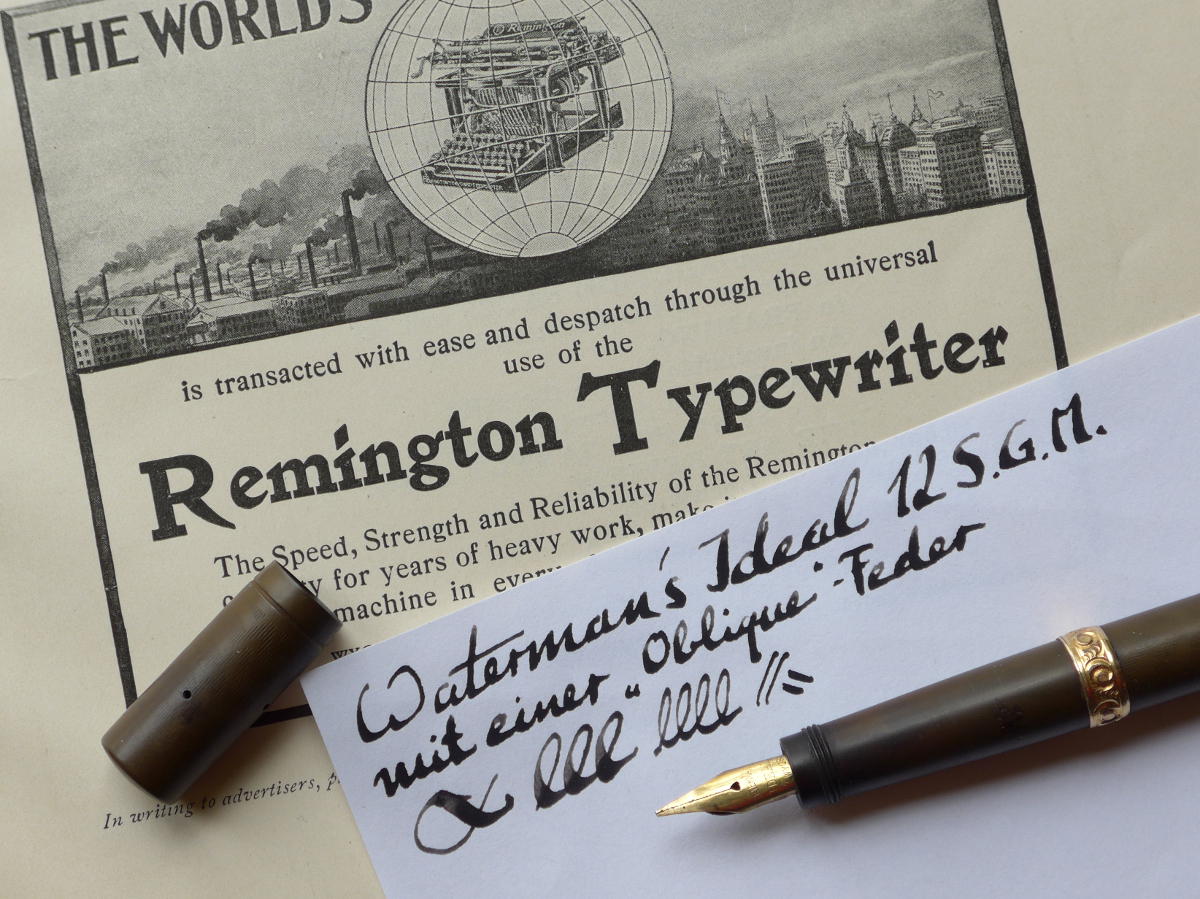 THE WORLD'S
Remington
is transacted with ease and despatch through the universal
use of the
Remington Typewriter
The Speed, Strength and Reliability of the Remington
for years of heavy work,
machine in
In writing to advertisers,
Waterman's Ideal 12 S.G.M.
mit einer „Oblique"-Feder